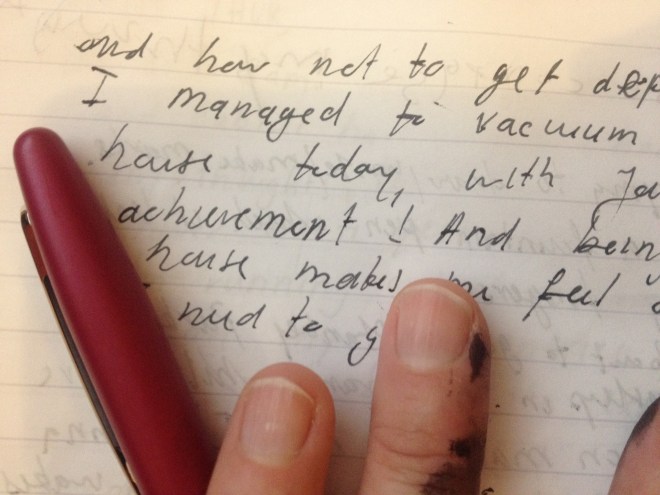 and how not to get dep
I managed to vacuum
house today, with
achievement! And bein
house makes me feel
need to g